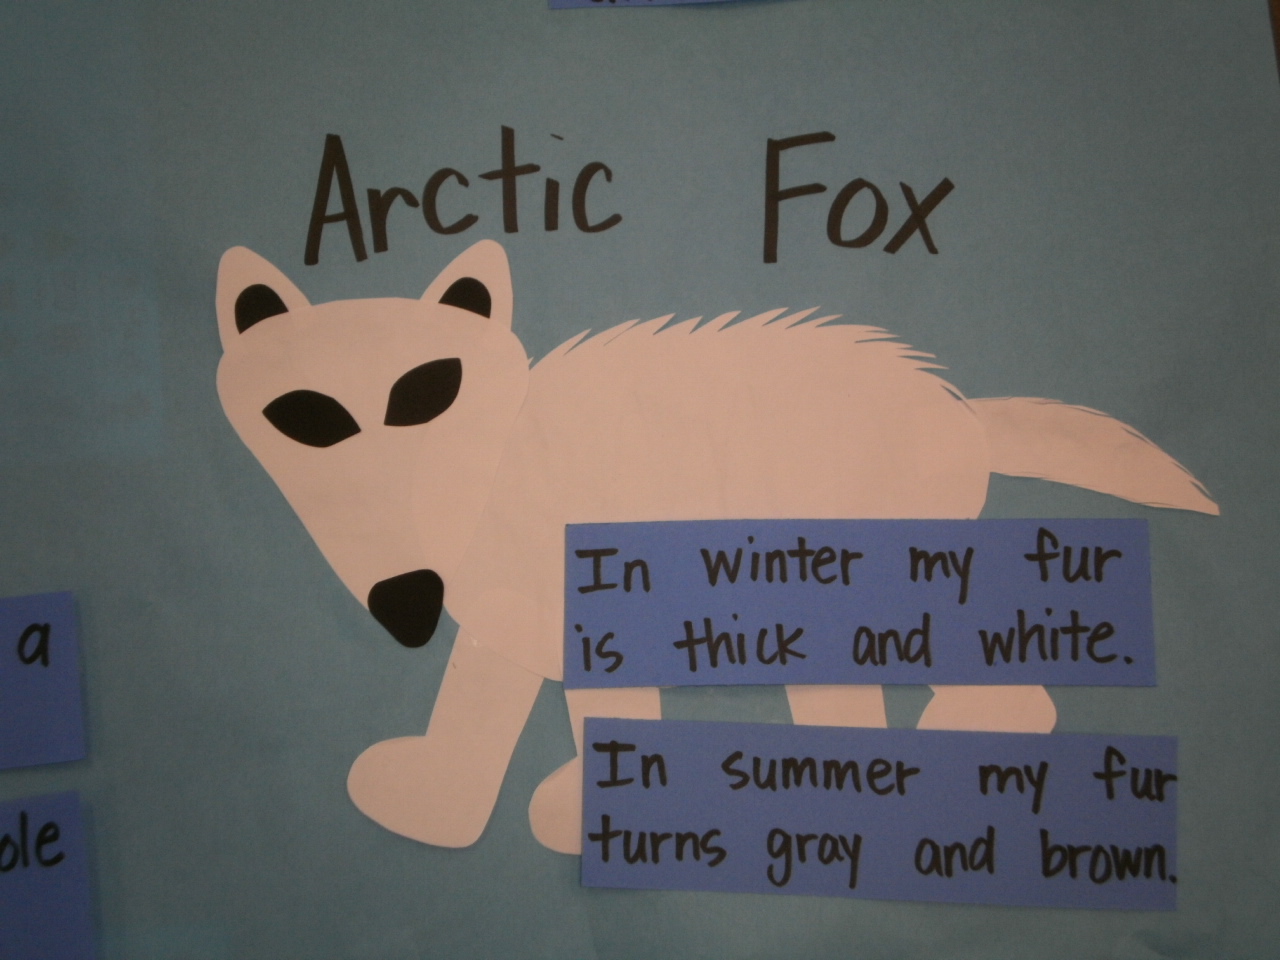 Arctic Fox
In winter my fur
is thick and white.
In summer my fur
turns gray and brown.
a